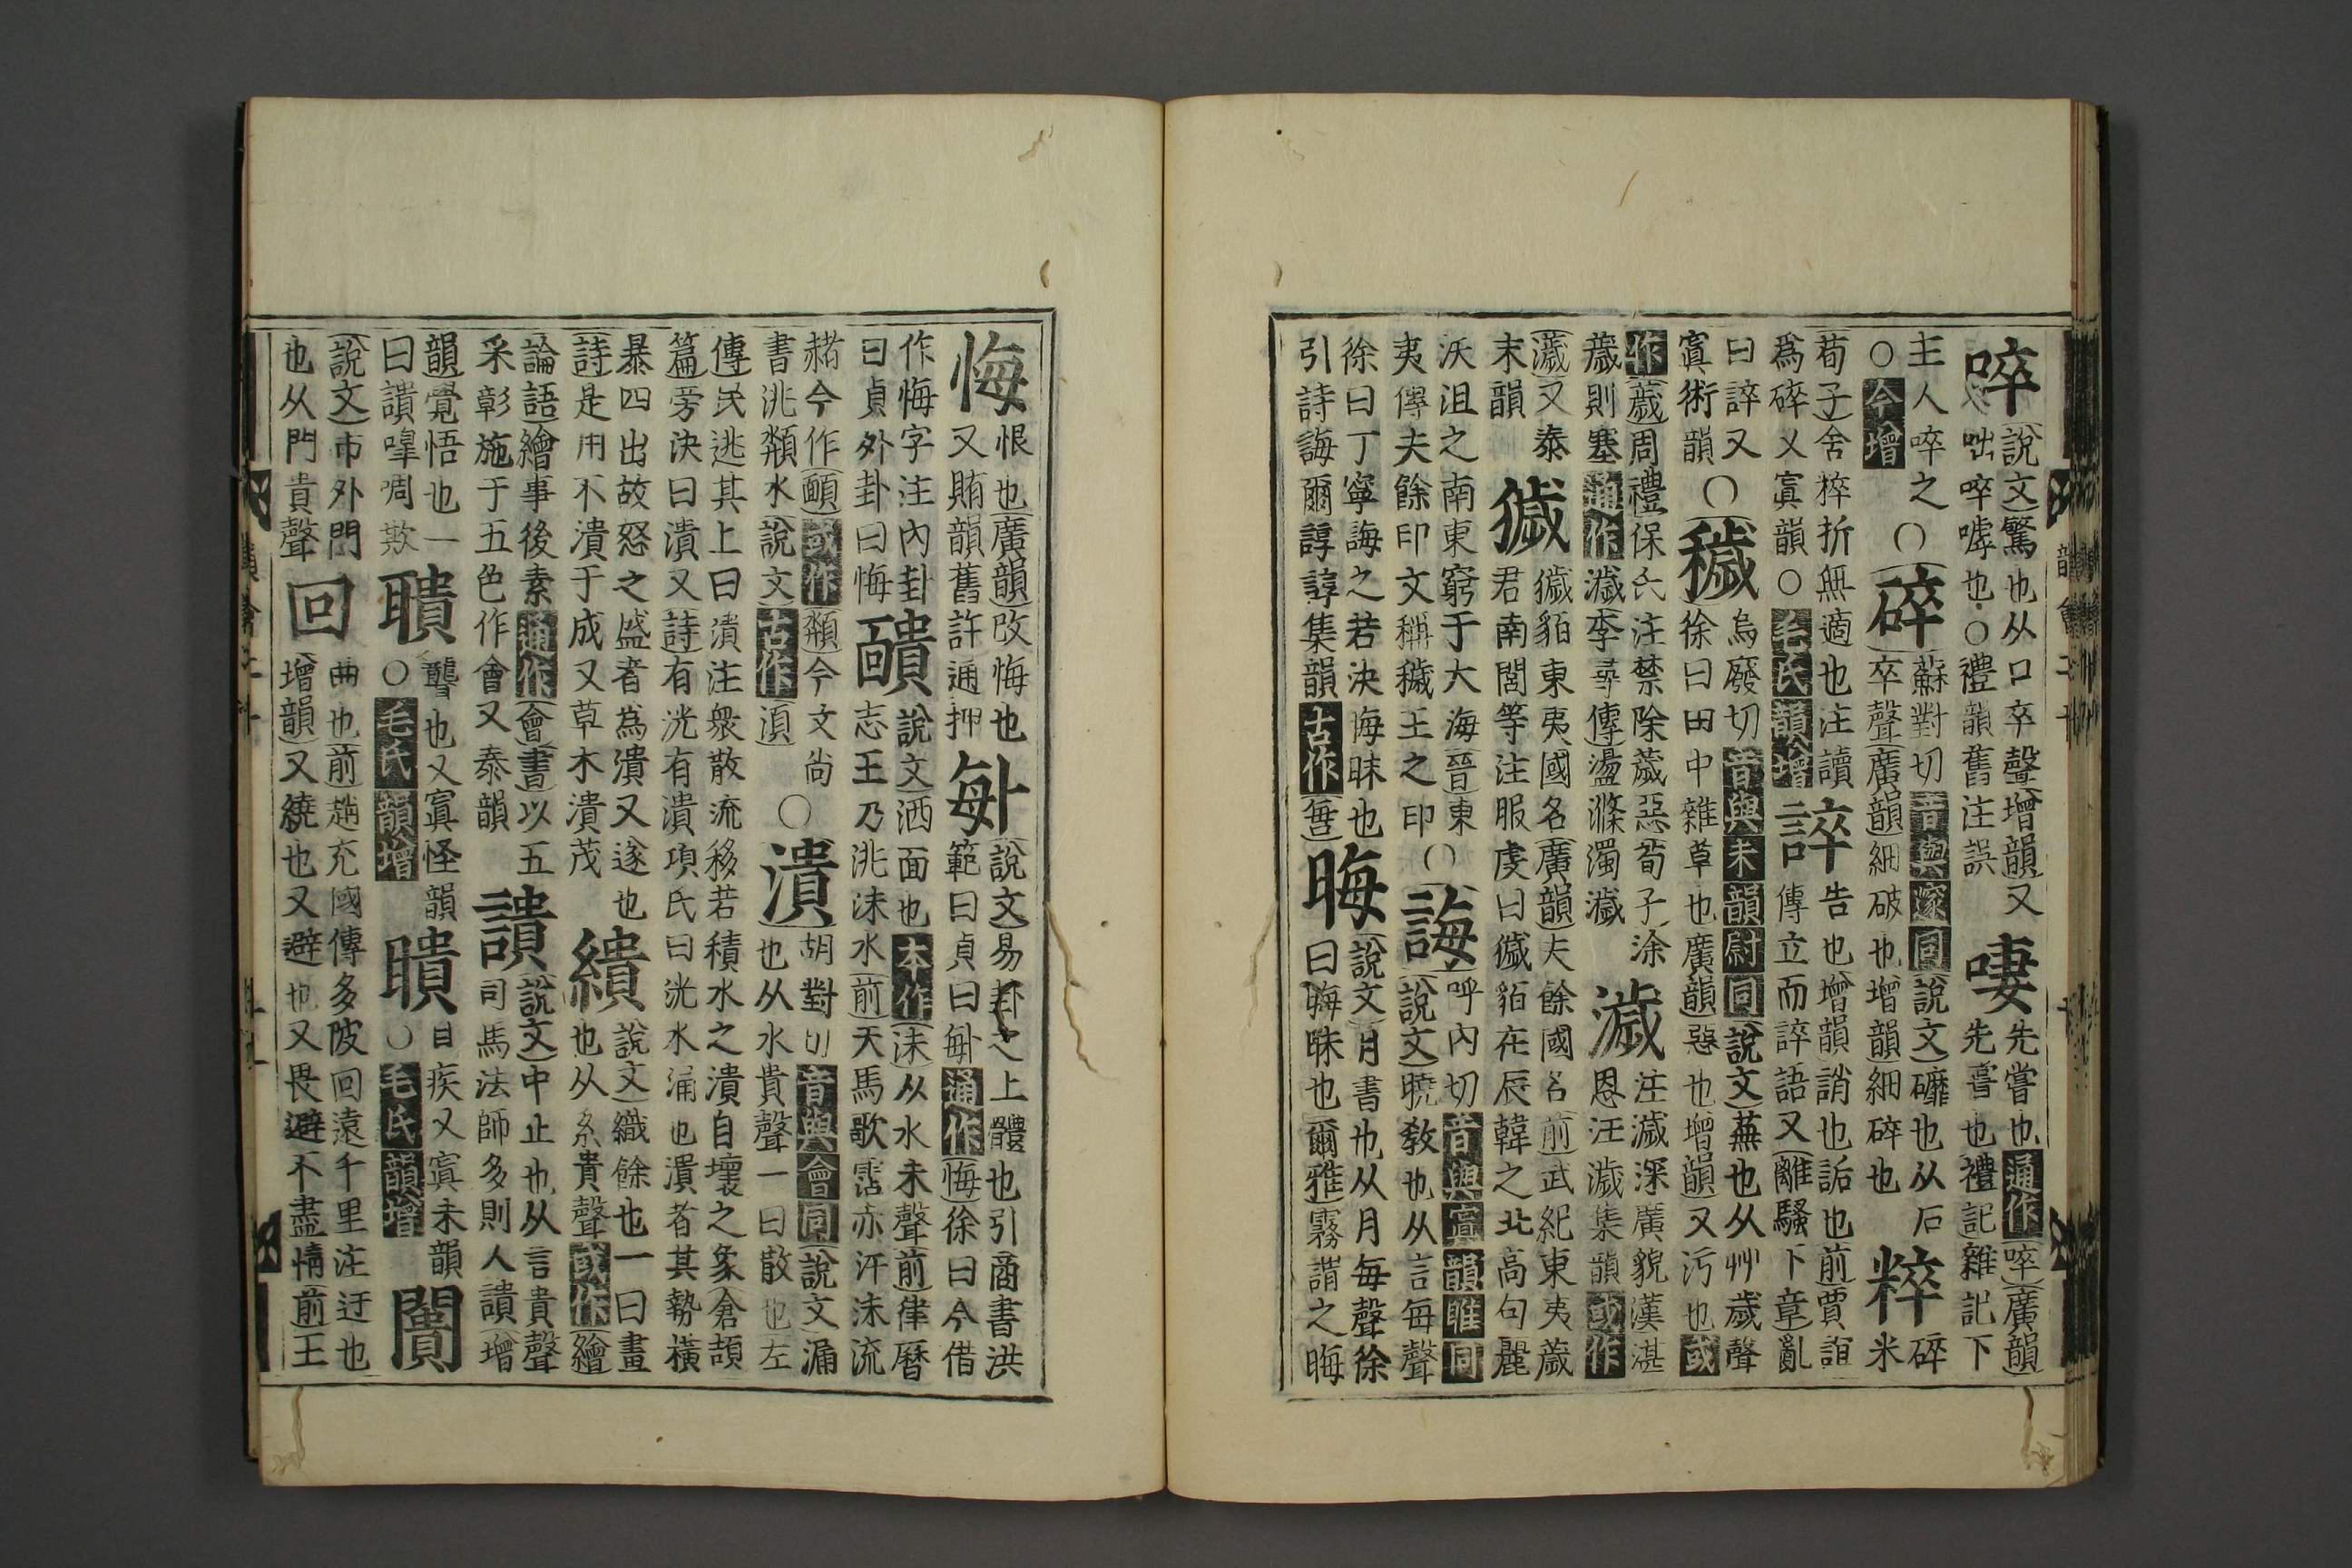 啐說文驚也从口卒聲增韻又咄啐也○禮韻舊注誤啛先嘗也通作啐廣韻先嘗也禮記雜記下
主人啐之○今增○碎蘇對切音與邃同說文䃺也从石卒聲廣韻細破也增韻細碎也粹碎米
荀子舍粹折無適也注讀爲碎又寘韻○毛氏韻增誶告也增韻誚也詬也前賈誼傳立而誶語又離騷下章亂
曰誶又寘術韻○穢烏廢切音與未韻尉同說文蕪也从艸歲聲徐曰田中雜草也廣韻惡也增韻又污也或
作薉周禮保氏注禁除薉惡荀子涂薉則塞通作濊李尋傳盪滌濁濊濊注濊深廣貌漢湛恩汪濊集韻或作
濊又泰末韻獩獩貊東夷國名廣韻夫餘國名前武紀東夷薉君南閭等注服虔曰獩貊在辰韓之北高句麗
沃沮之南東窮于大海晉東夷傳夫餘印文稱穢王之印○誨呼內切音與寘韻睢同說文曉敎也从言每聲
徐曰丁寧誨之若決晦昧也引詩誨爾諄諄集韻古作晦說文月書也从月每聲徐曰晦昧也爾雅霧謂之晦
悔恨也廣韻改悔也又賄韻舊許通押𠧩說文易卦之上體也引商書洪範曰貞曰𠧩通作悔徐曰今借
作悔字注內卦曰貞外卦曰悔靧說文洒面也本作沬从水未聲前律曆志王乃洮沬水前天馬歌霑赤汗沬流
赭今作靧或作頮今文尚書洮頮水說文古作湏○潰胡對切音與會同說文漏也从水貴聲一曰散也左
傳民逃其上曰潰注衆散流移若積水之潰自壞之象倉頡篇旁決曰潰又詩有洸有潰項氏曰洸水涌也潰者其勢橫
暴四出故怒之盛者爲潰又遂也詩是用不潰于成又草木潰茂繢說文織餘也一曰畫也从糸貴聲或作繪
論語繪事後素通作會書以五采彰施于五色作會又泰韻䜋說文中止也从言貴聲司馬法師多則人䜋增
韻覺悟也一曰䜋嘩啁欺聵聾也又寘怪韻○毛氏韻增瞶目疾又寘未韻○毛氏韻增闠
說文市外門也从門貴聲回曲也前趙充國傳多陂回遠千里注迂也增韻又繞也又避也又畏避不盡情前王